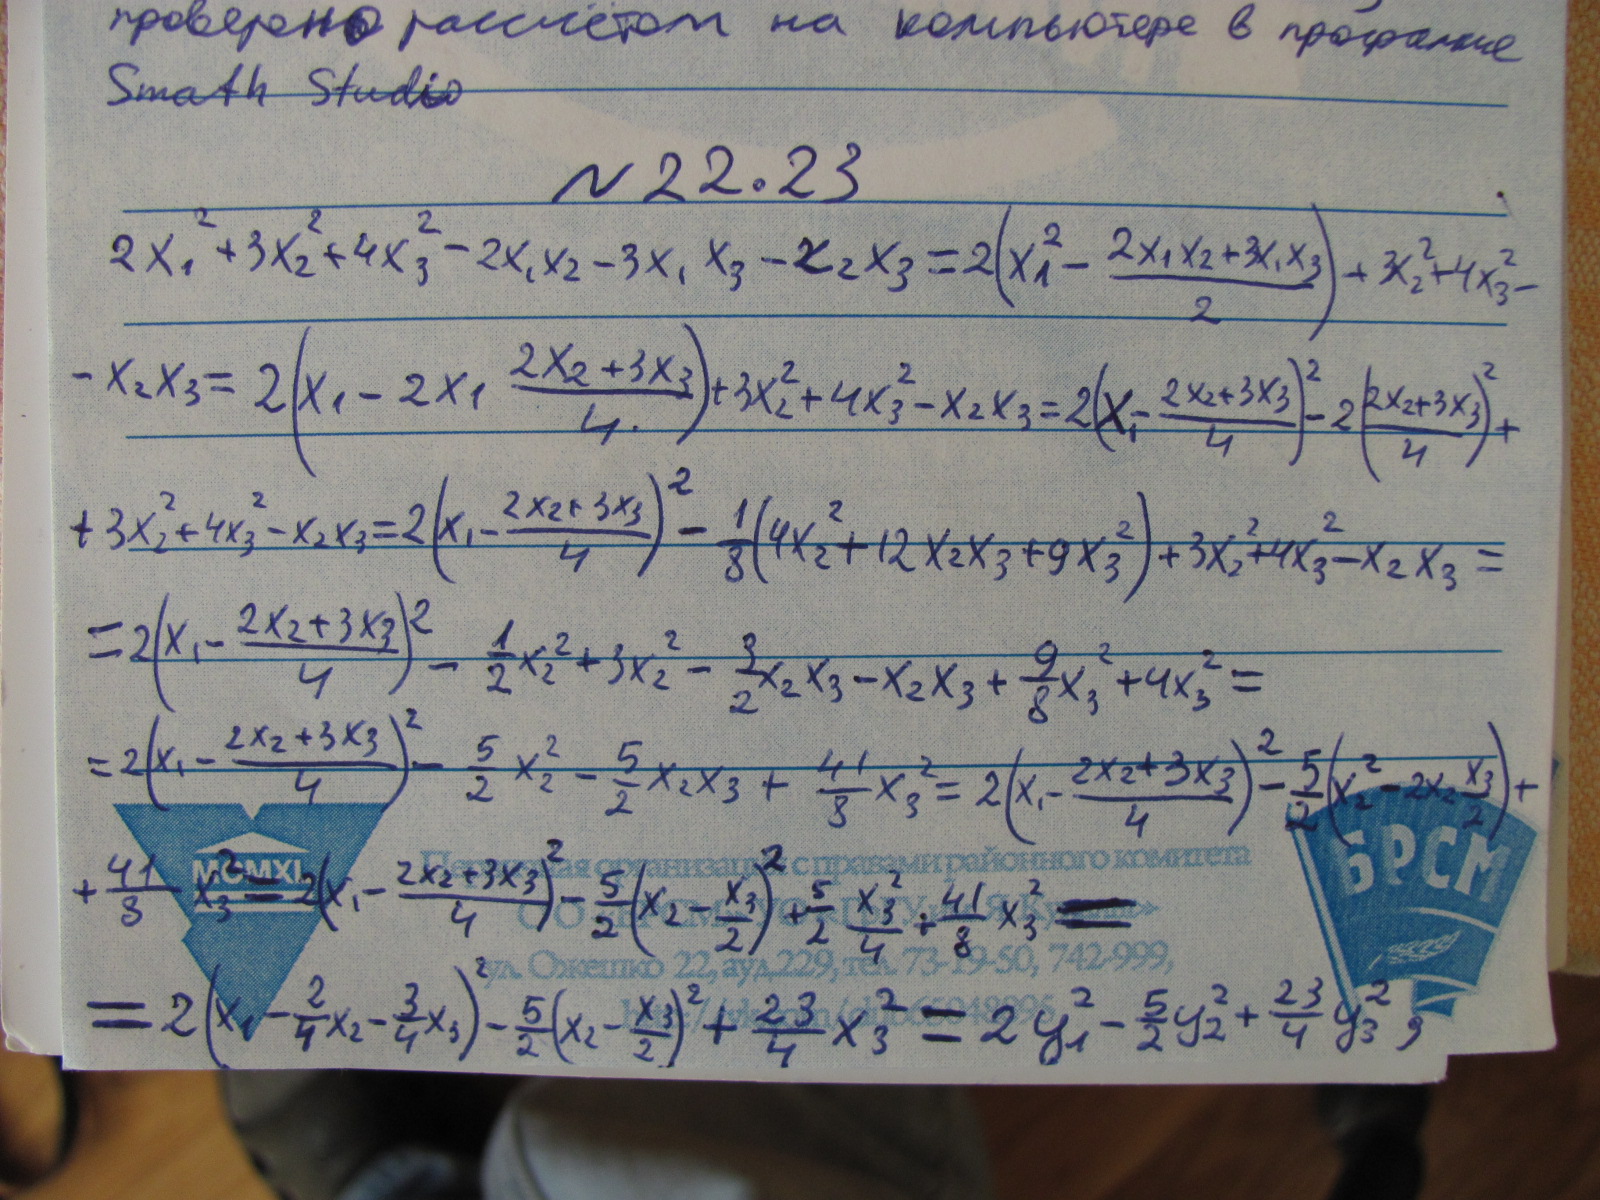 проверено рассчётом на компьютере в программе
Smath Studio
N 22.23
2x₁² + 3x₂² + 4x₃² - 2x₁x₂ - 3x₁x₃ - x₂x₃ = 2(x₁² - (2x₁x₂ + 3x₁x₃)/2) + 3x₂² + 4x₃² -
- x₂x₃ = 2(x₁ - 2x₁ (2x₂ + 3x₃)/4) + 3x₂² + 4x₃² - x₂x₃ = 2(x₁ - (2x₂ + 3x₃)/4)² - 2((2x₂ + 3x₃)/4)² +
+ 3x₂² + 4x₃² - x₂x₃ = 2(x₁ - (2x₂ + 3x₃)/4)² - 1/8(4x₂² + 12x₂x₃ + 9x₃²) + 3x₂² + 4x₃² - x₂x₃ =
= 2(x₁ - (2x₂ + 3x₃)/4)² - 1/2x₂² + 3x₂² - 3/2x₂x₃ - x₂x₃ + 9/8x₃² + 4x₃² =
= 2(x₁ - (2x₂ + 3x₃)/4)² - 5/2x₂² - 5/2x₂x₃ + 41/8x₃² = 2(x₁ - (2x₂ + 3x₃)/4)² - 5/2(x₂² - 2x₂ x₃/2) +
+ 41/8 x₃² = 2(x₁ - (2x₂ + 3x₃)/4)² - 5/2(x₂ - x₃/2)² + 5/2 x₃²/4 + 41/8 x₃² =
= 2(x₁ - 2/4x₂ - 3/4x₃)² - 5/2(x₂ - x₃/2)² + 23/4 x₃² = 2y₁² - 5/2y₂² + 23/4y₃²,
MCMXL
БРСМ
организация с правами районного комитета
ул. Ожешко 22, ауд.229, тел. 73-19-50, 742-999,